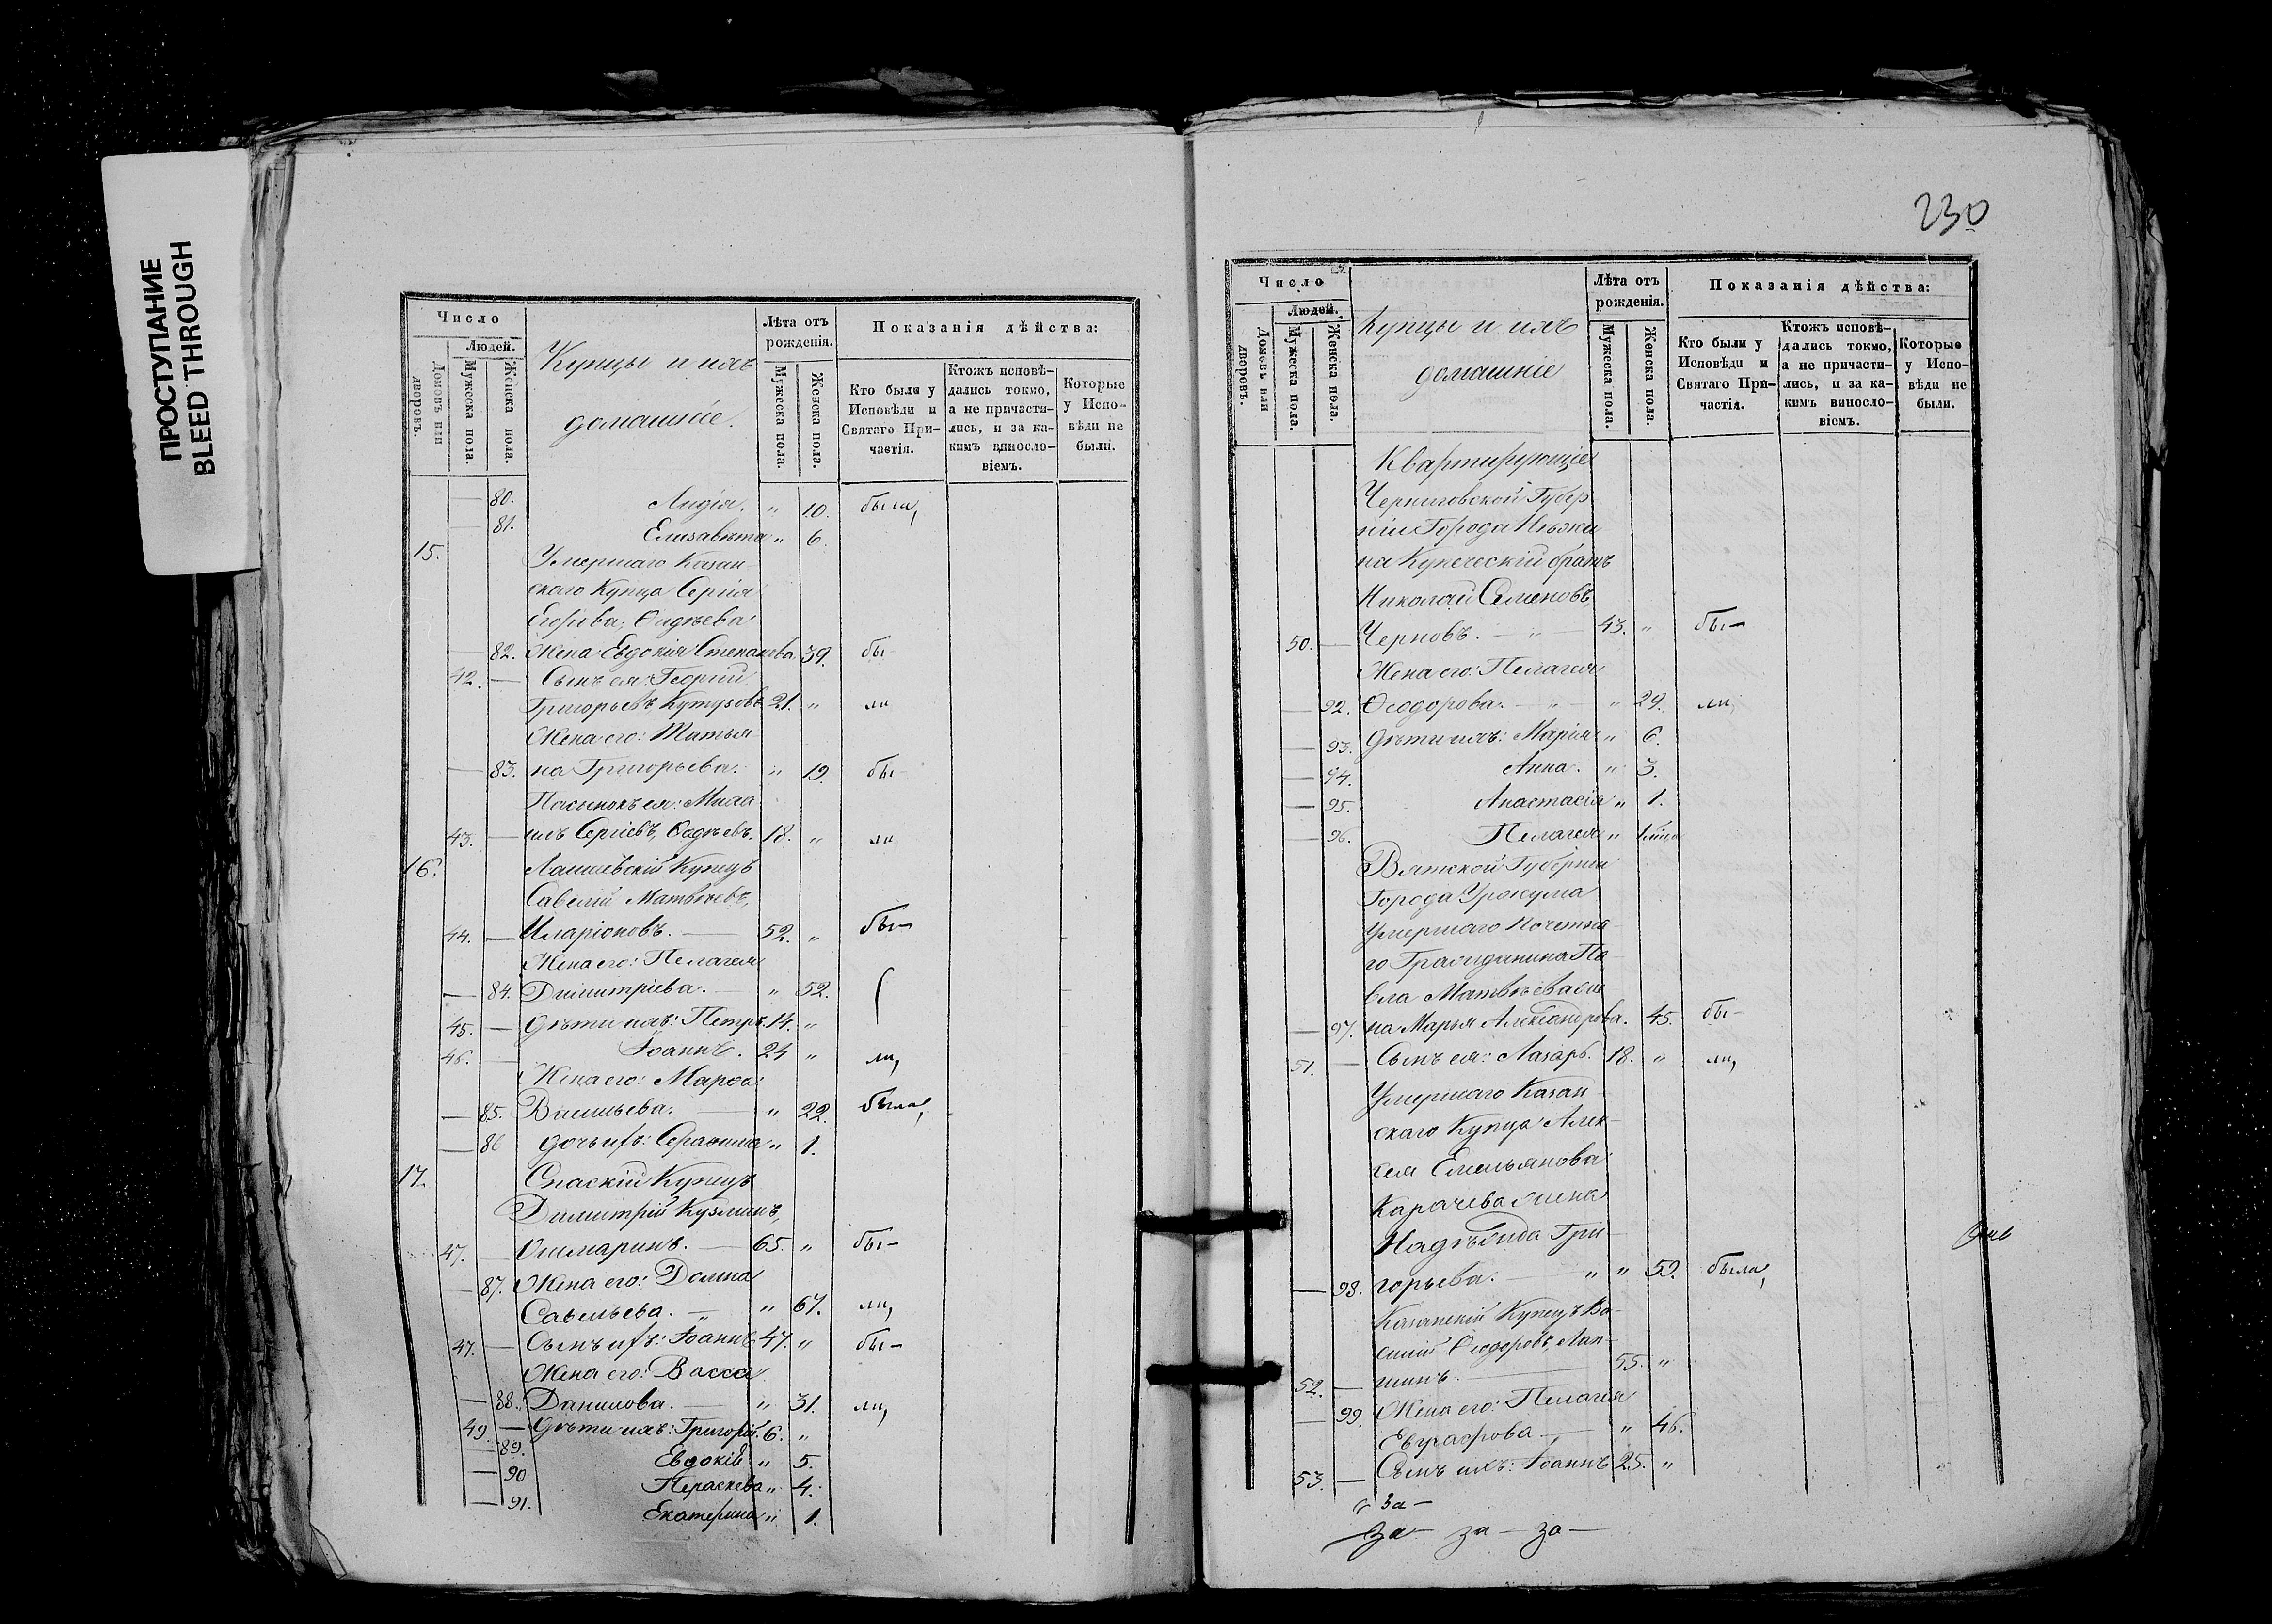 ПРОСТУПАНИЕ
BLEED THROUGH
Число
Людей.
Домовъ или дворовъ.
Мужеска пола.
Женска пола.
Купцы и ихъ
домашніе.
Лѣта отъ рожденія.
Мужеска пола.
Женска пола.
Показанія дѣйства:
Кто были у Исповѣди и Святаго Причастія.
Ктожъ исповѣдались токмо, а не причастились, и за какимъ винословіемъ.
Которые у Исповѣди не были.
— 80. Лидія. " 10. была,
— 81. Елизавѣта " 6.
15. Умершаго Казан
скаго Купца Сергія
Егорова, Ѳадѣева
— 82. Жена: Евдокія Степанова 39. бы
42. — Сынъ ея: Георгій
Григорьевъ, Кутузовъ 21. " ли
Жена его: Татья
— 83. на Григорьева. " 19. бы
Пасынокъ ея: Миха
43. — илъ Сергіевъ, Ѳадѣевъ. 18. " ли
16. Лаишевскій Купецъ
Савелій Матвѣевъ,
44. — Иларіоновъ. — 52. " бы—
Жена его: Пелагея
— 84. Димитріева. — " 52.
45. — Дѣти ихъ: Петръ. 14. "
46. — Іоаннъ. 24 " ли,
Жена его: Марѳа
— 85. Васильева: — " 22. была,
— 86 дочь ихъ: Серафима " 1.
17. Спаскій Купецъ
Димитрій Кузминъ,
47. — Ошмаринъ. — 65. " бы—
— 87. Жена его: Домна
Савельева. — " 67. ли,
47. — Сынъ ихъ: Іоаннъ 47. " бы—
Жена его: Васса
— 88. Данилова. — " 31. ли,
49. — Дѣти ихъ: Григорій. 6. "
— 89. Евдокія " 5.
— 90 Параскева " 4.
— 91. Екатерина " 1.
230
Число
Людей.
Домовъ или дворовъ.
Мужеска пола.
Женска пола.
Купцы и ихъ
домашніе
Лѣта отъ рожденія.
Мужеска пола.
Женска пола.
Показанія дѣйства:
Кто были у Исповѣди и Святаго Причастія.
Ктожъ исповѣдались токмо, а не причастились, и за какимъ винословіемъ.
Которые у Исповѣди не были.
Квартирующіе
Черниговской Губер
ніи Города Нѣжи
на Купеческій братъ
Николай Семеновъ,
50. — Черновъ. — " — 43. " бы—
Жена его: Пелагея
— 92. Ѳеодорова. — " — " 29. ли,
— 93. Дѣти ихъ: Марія " 6.
— 94. Анна. " 3.
— 95. Анастасія " 1.
— 96. Пелагея "
Вятской Губерніи
Города Уржума
Умершаго Почетна
го Гражданина Па
вла Матвѣева же
— 97. на Марья Александрова. 45. бы—
51. — Сынъ ея: Лазарь. 18. " ли,
Умершаго Казан
скаго Купца Алек—
сея Емельянова
Карачева жена
Надѣжда Гри—
— 98. горьева. — " " 59. была,
Казанскій Купецъ Ва—
силій Ѳеодоровъ, Лап—
52. — шинъ. — 55. "
— 99. Жена его: Пелагея
Евграфова — " 46.
53. — Сынъ ихъ: Іоаннъ 25. "
за—
за— за— за—